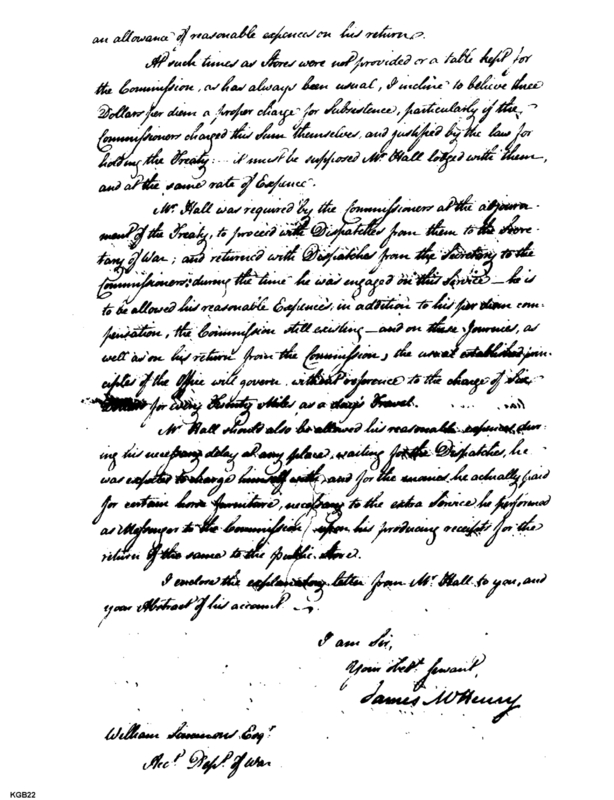 an allowance of reasonable expences on his return.
At such times as Stores were not provided or a table kept for
the Commission, as has always been usual, I incline to believe three
Dollars per diem a proper charge for Subsistence, particularly if the
Commissioners charged this Sum themselves, and justified by the law for
holding the Treaty: it must be supposed Mr. Hall lodged with them,
and at the same rate of Expence.
Mr. Hall was required by the Commissioners at the adjourn-
ment of the Treaty, to proceed with Dispatches from them to the Secre-
tary of War; and returned with Dispatches from the Secretary to the
Commissioners; during the time he was engaged on this Service - he is
to be allowed his reasonable Expences, in addition to his per diem com-
pensation, the Commission still existing - and on these Journies, as
well as on his return from the Commission, the usual established prin-
ciples of the Office will govern without reference to the charge of Six
Dollars for every Twenty Miles, as a day's Travel.
Mr Hall should also be allowed his reasonable expences, dur-
ing his necessary delay at any place, waiting for the Dispatches, he
was expected to charge himself with, and for the monies, he actually paid
for certain horse furniture, necessary to the extra Service he performed
as Messenger to the Commission, upon his producing receipts for the
return of the same to the public Store.
I enclose the explanatory letter from Mr. Hall to you, and
your Abstract of his account.
I am Sir,
Your Obet. Servant,
James McHenry
William Simmons Esqr.
Acct. Dept. of War
KGB22